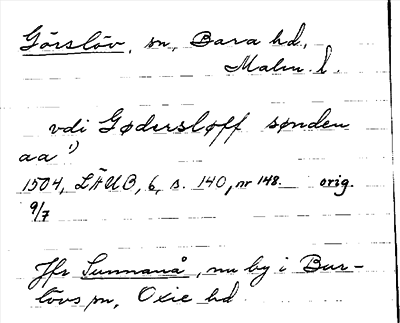 Görslöv, sn, Bara hd,
Malm. l.
vdi Gødersløff sønden
aa ¹)
1504, LÄUB, 6, s. 140, nr 148. orig.
9/7
Jfr Sunnanå, nu by i Bur-
lövs sn, Oxie hd